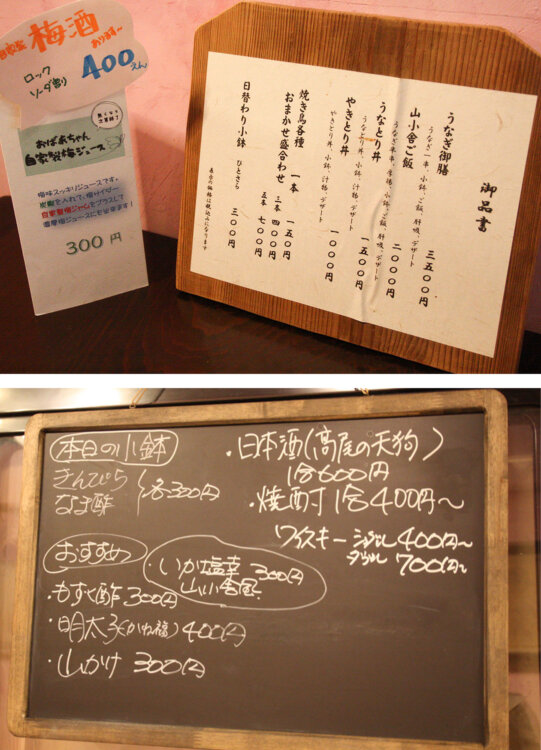 自家製 梅酒
あります〜
ロック
ソーダ割り
400えん
無くなり
次第終了
おばあちゃん
自家製梅ジュース
梅味スッキリジュースです。
300円
御品書
うなぎ御膳 三五〇〇円
うなぎ一串、小鉢、ご飯、肝吸、デザート
山小舎ご飯 二〇〇〇円
うなとり丼 一五〇〇円
うなぎ、やきとり丼、小鉢、汁物、デザート
やきとり丼 一〇〇〇円
やきとり丼、小鉢、汁物、デザート
焼き鳥各種 一本 一五〇円
おまかせ盛合わせ 三本 四〇〇円
五本 七〇〇円
日替わり小鉢 ひとさら 三〇〇円
表示価格は税込みになります
本日の小鉢
きんぴら
なま酢
各300円
おすすめ
・いか塩辛 300円
山小舎風
・もずく酢 300円
・明太子(かね福) 400円
・山かけ 300円
・日本酒(高尾の天狗)
1合600円
・焼酎 1合400円〜
ウイスキー シングル 400円〜
ダブル 700円〜